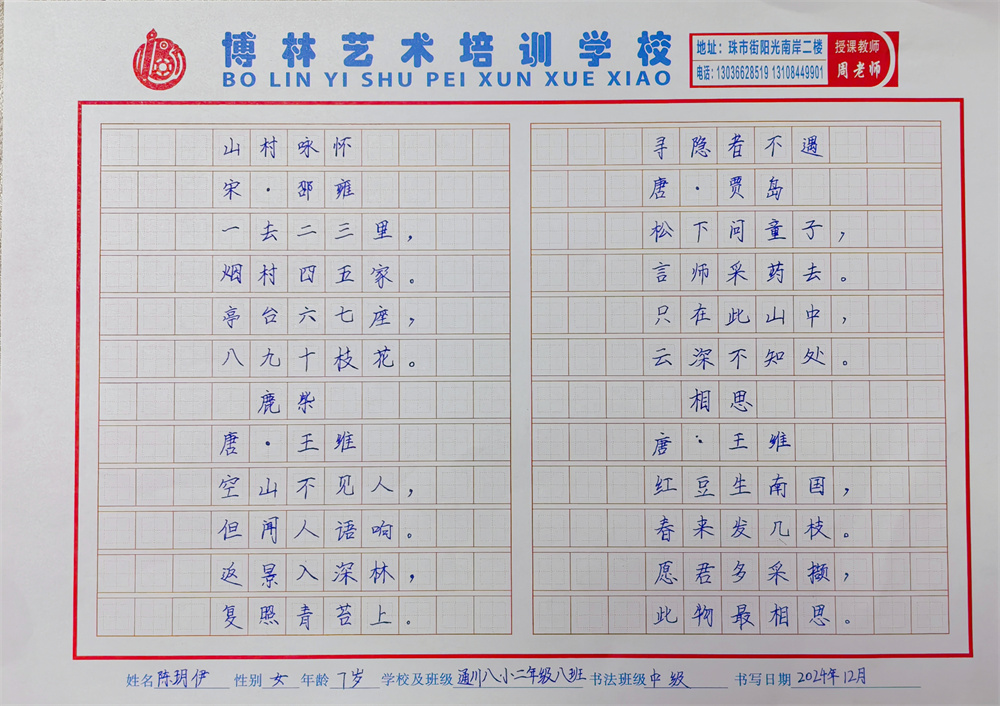 博林艺术培训学校
BO LIN YI SHU PEI XUN XUE XIAO
地址：珠市街阳光南岸二楼
电话：13036628519 13108449901
授课教师
周老师
山村咏怀
宋·邵雍
一去二三里，
烟村四五家。
亭台六七座，
八九十枝花。
鹿柴
唐·王维
空山不见人，
但闻人语响。
返景入深林，
复照青苔上。
寻隐者不遇
唐·贾岛
松下问童子，
言师采药去。
只在此山中，
云深不知处。
相思
唐·王维
红豆生南国，
春来发几枝。
愿君多采撷，
此物最相思。
姓名 陈玥伊 性别 女 年龄 7岁 学校及班级 通川八小二年级八班 书法班级 中级 书写日期 2024年12月